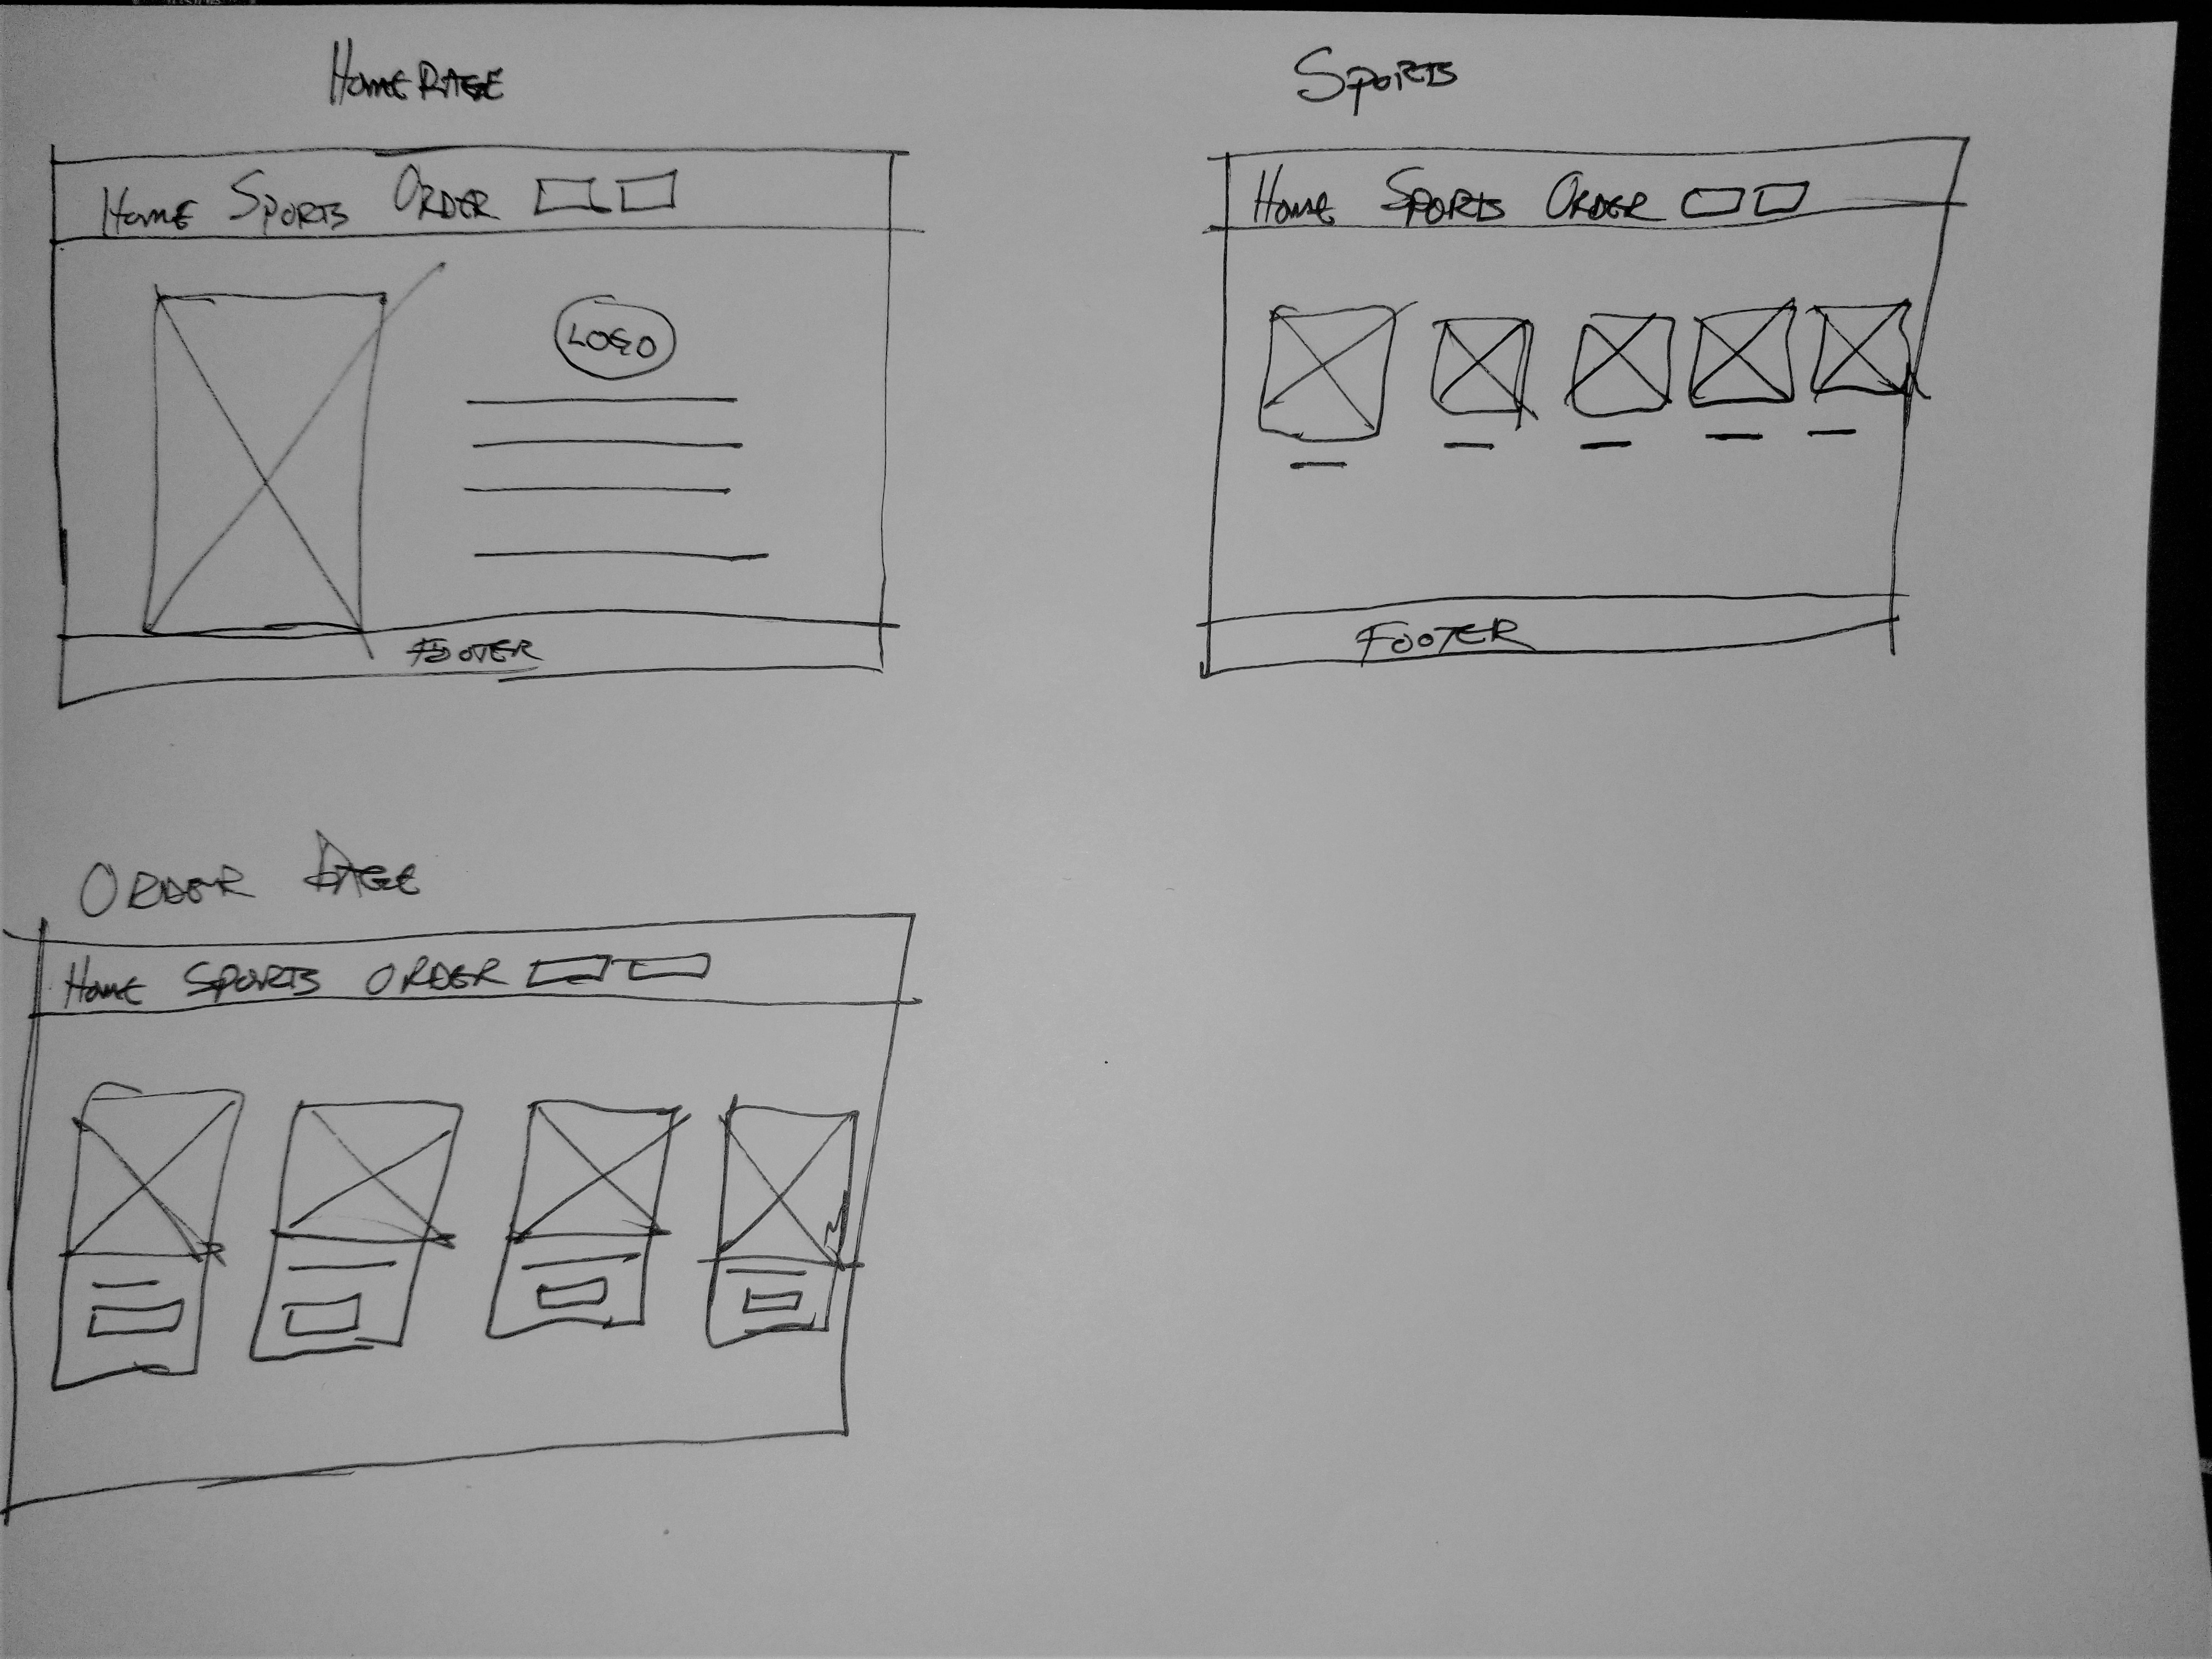 HOMEPAGE
HOME SPORTS ORDER
LOGO
FOOTER
SPORTS
HOME SPORTS ORDER
FOOTER
ORDER PAGE
HOME SPORTS ORDER